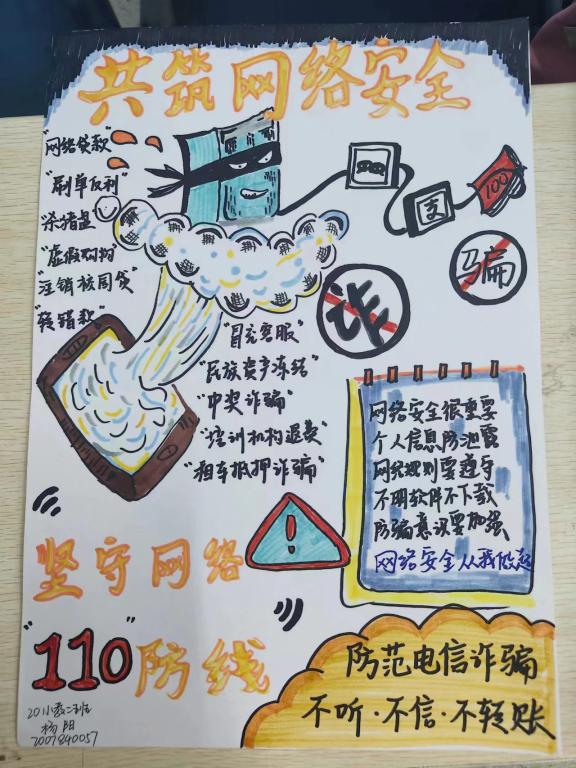 共筑网络安全
"网络贷款"
"刷单返利"
"杀猪盘"
"虚假购物"
"注销校园贷"
"转错款"
支
100
诈
骗
"冒充客服"
"民族资产冻结"
"中奖诈骗"
"培训机构退费"
"租车抵押诈骗"
网络安全很重要
个人信息防泄露
网络规则要遵守
不明软件不下载
防骗意识要加强
网络安全从我做起
!
坚守网络
"110"防线
防范电信诈骗
不听·不信·不轻账
杨阳
2007840057